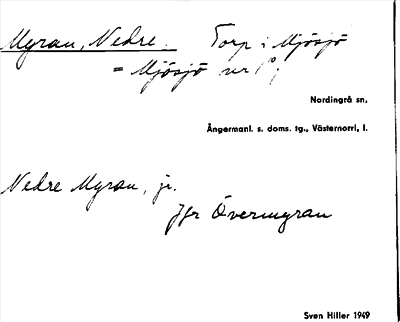 Myran, Nedre. Torp i Mjösjö
= Mjösjö nr 1
Nordingrå sn,
Ångermanl. s. doms. tg., Västernorrl, l.
Nedre Myran, jr.
Jfr Övermyran
Sven Hiller 1949